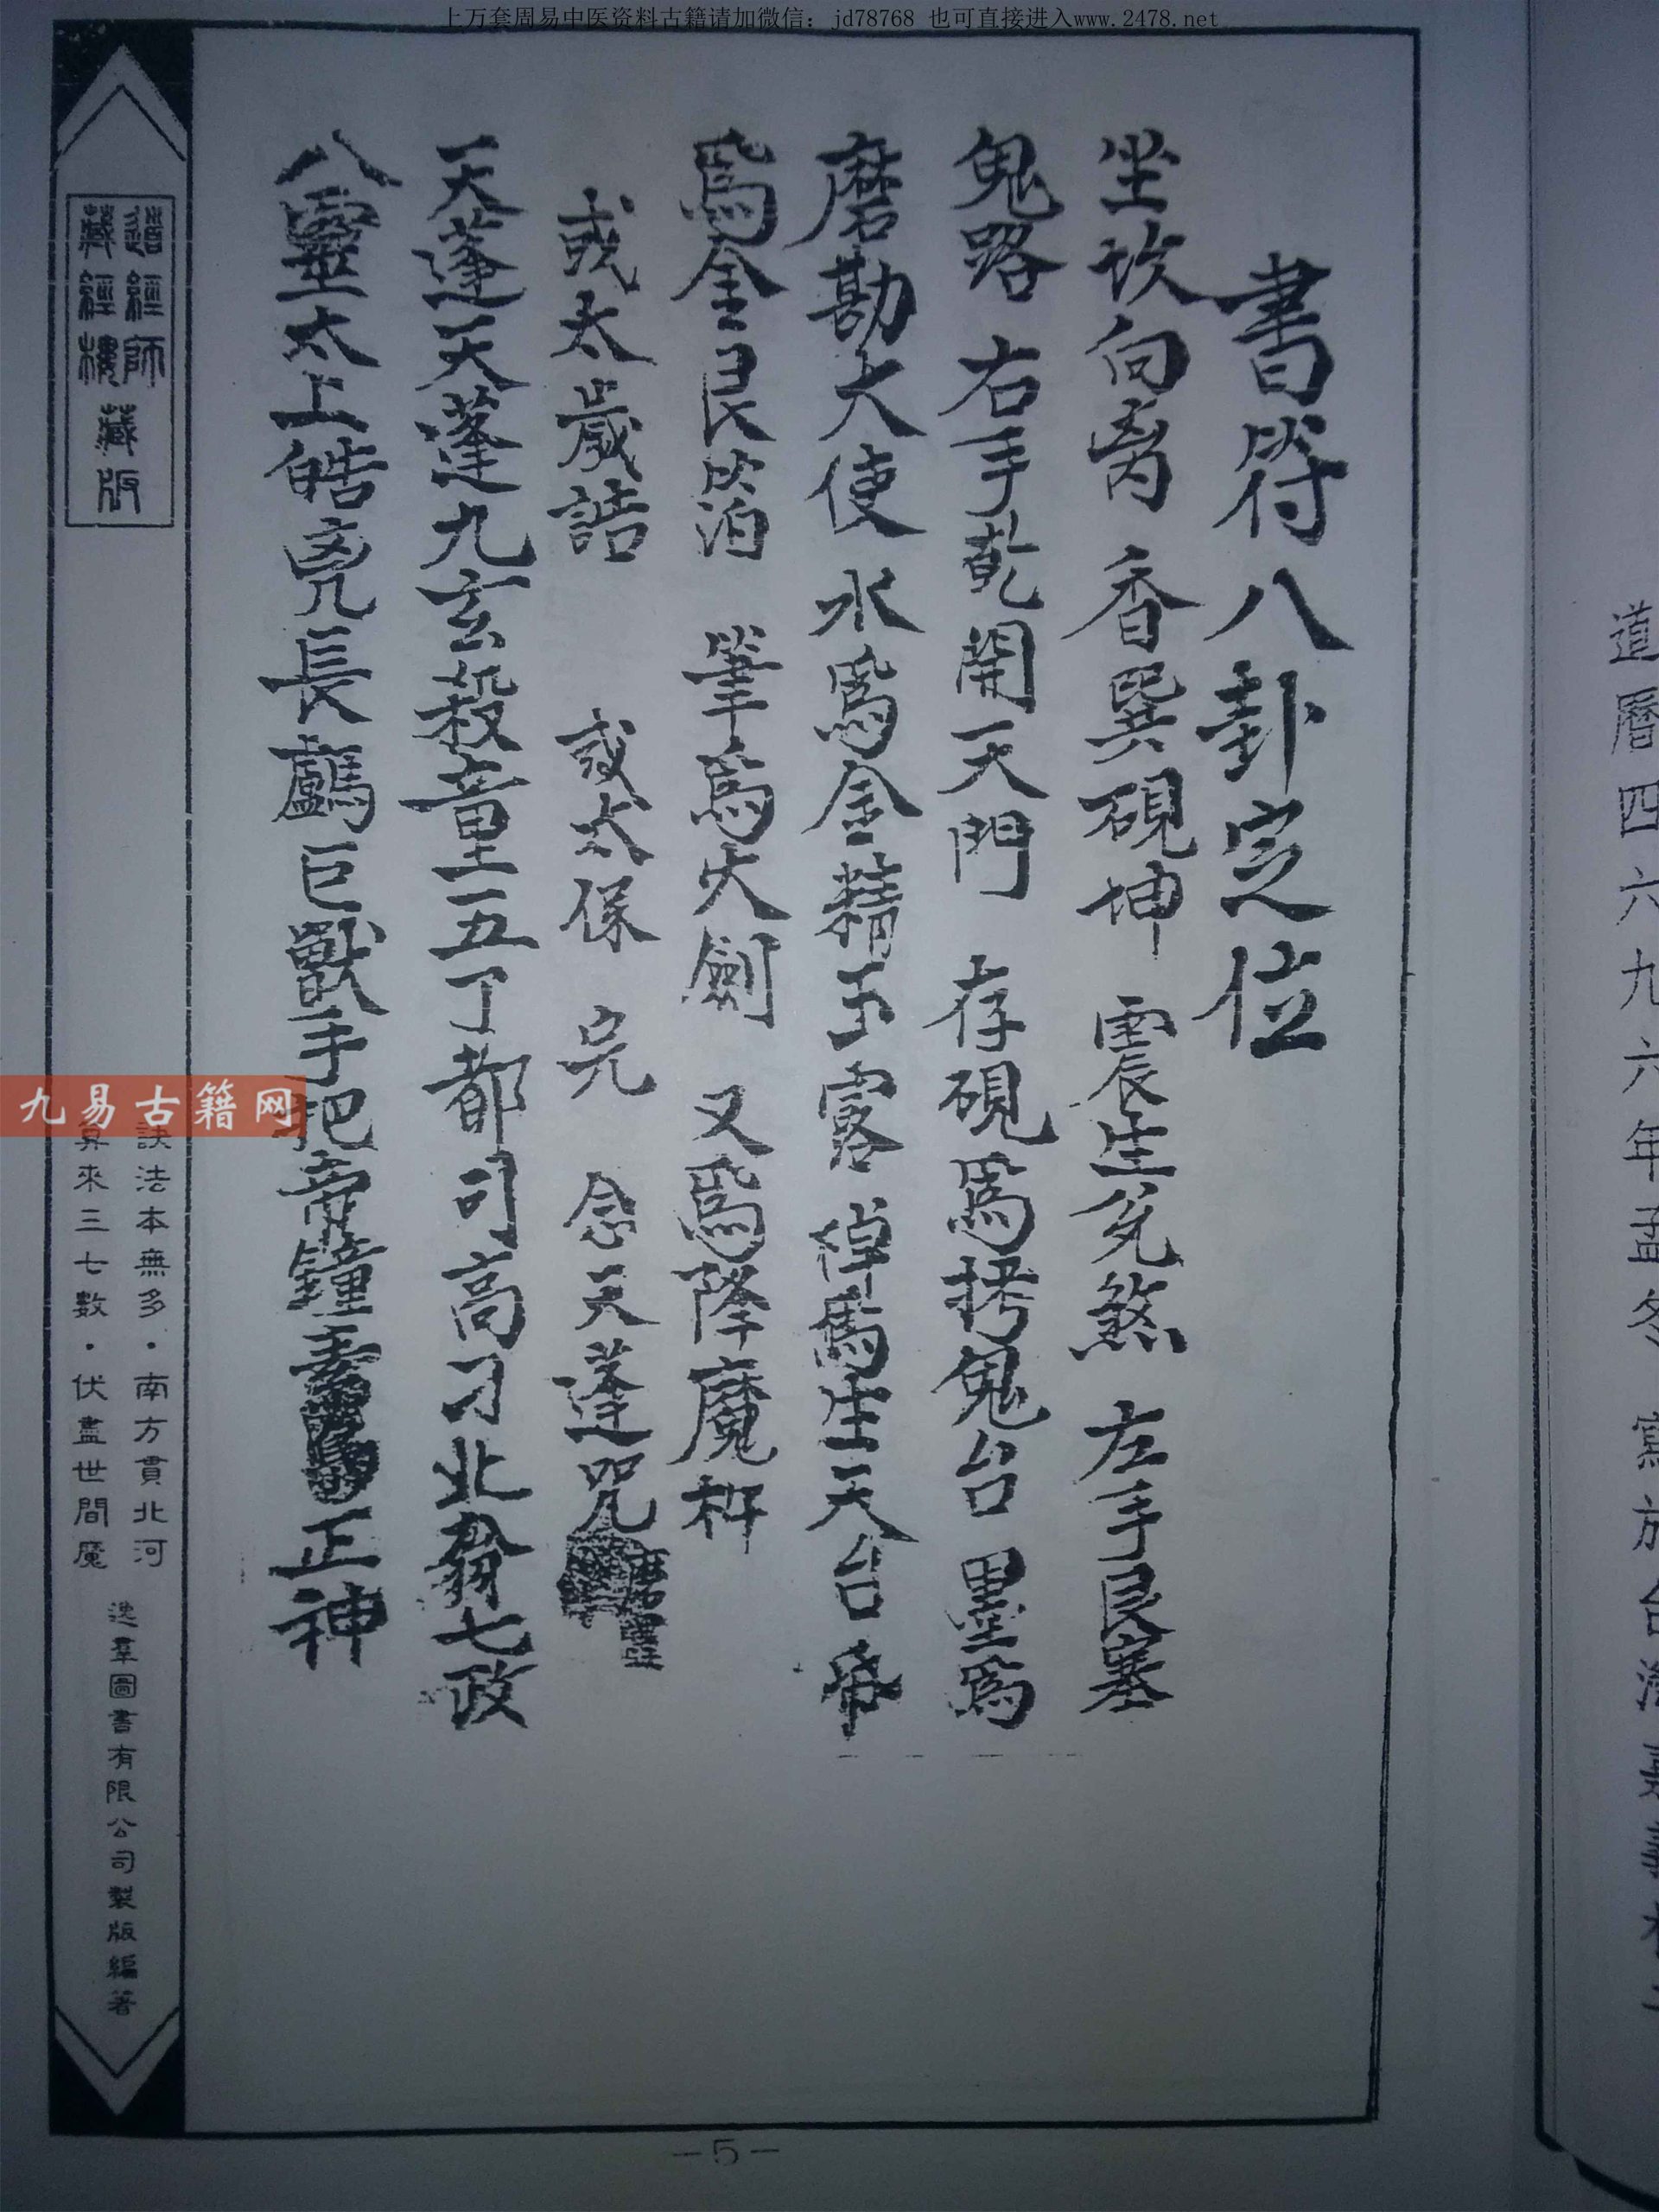 上万套周易中医资料古籍请加微信：jd78768 也可直接进入www.2478.net
書符八卦定位
坐坎向离 香巽硯坤 震生兌煞 左手艮塞
鬼路 右手乾開天門 存硯為拷鬼台 墨為
磨勘大使 水為金精玉露 為生天台 帛
為金艮箔 筆為火劍 又為降魔杵
或太歲誥 或太保 完 念天蓬咒
天蓬天蓬九玄殺童五丁都司高刁北翁七政
八靈太上皓凶長顱巨獸手把帝鐘素 正神
道經師
藏經樓
藏版
訣法本無多·南方貫北河
算來三七數·伏盡世間魔
逸羣圖書有限公司製版編著
九易古籍网
-5-
道曆四六九六年孟冬 寫於台灣嘉義